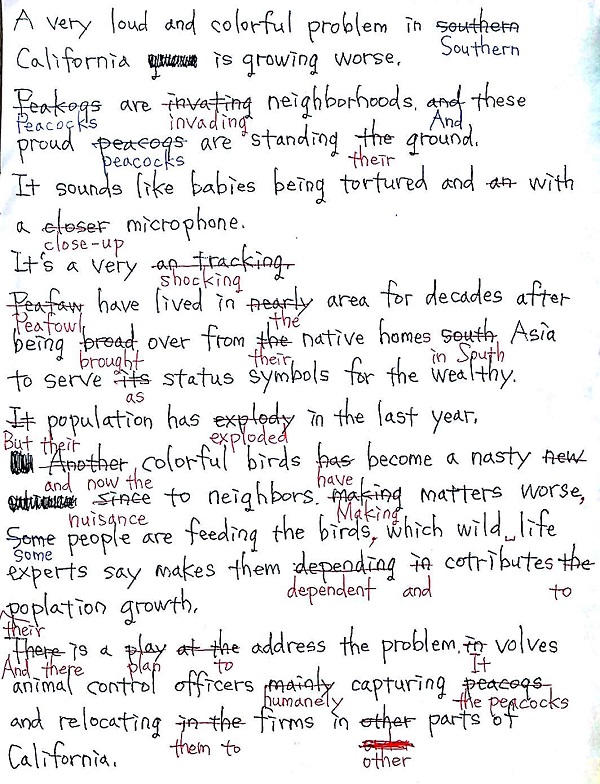 A very loud and colorful problem in southern
Southern
California is growing worse.
Peakogs are invating neighborhoods. and these
Peacocks invading And
proud peacogs are standing the ground.
peacocks their
It sounds like babies being tortured and an with
a closer microphone.
close-up
It's a very an tracking.
shocking
Peafaw have lived in nearly area for decades after
Peafowl the
being broad over from the native homes south Asia
brought their in South
to serve its status symbols for the wealthy.
as
It population has explody in the last year.
But their exploded
Another colorful birds has become a nasty new
and now the have
since to neighbors. making matters worse,
nuisance Making
Some people are feeding the birds, which wild life
some
experts say makes them depending in cotributes the
dependent and to
poplation growth.
their
There is a play at the address the problem. in volves
And there plan to It
animal control officers mainly capturing peacogs
humanely the peacocks
and relocating in the firms in other parts of
them to other
California.